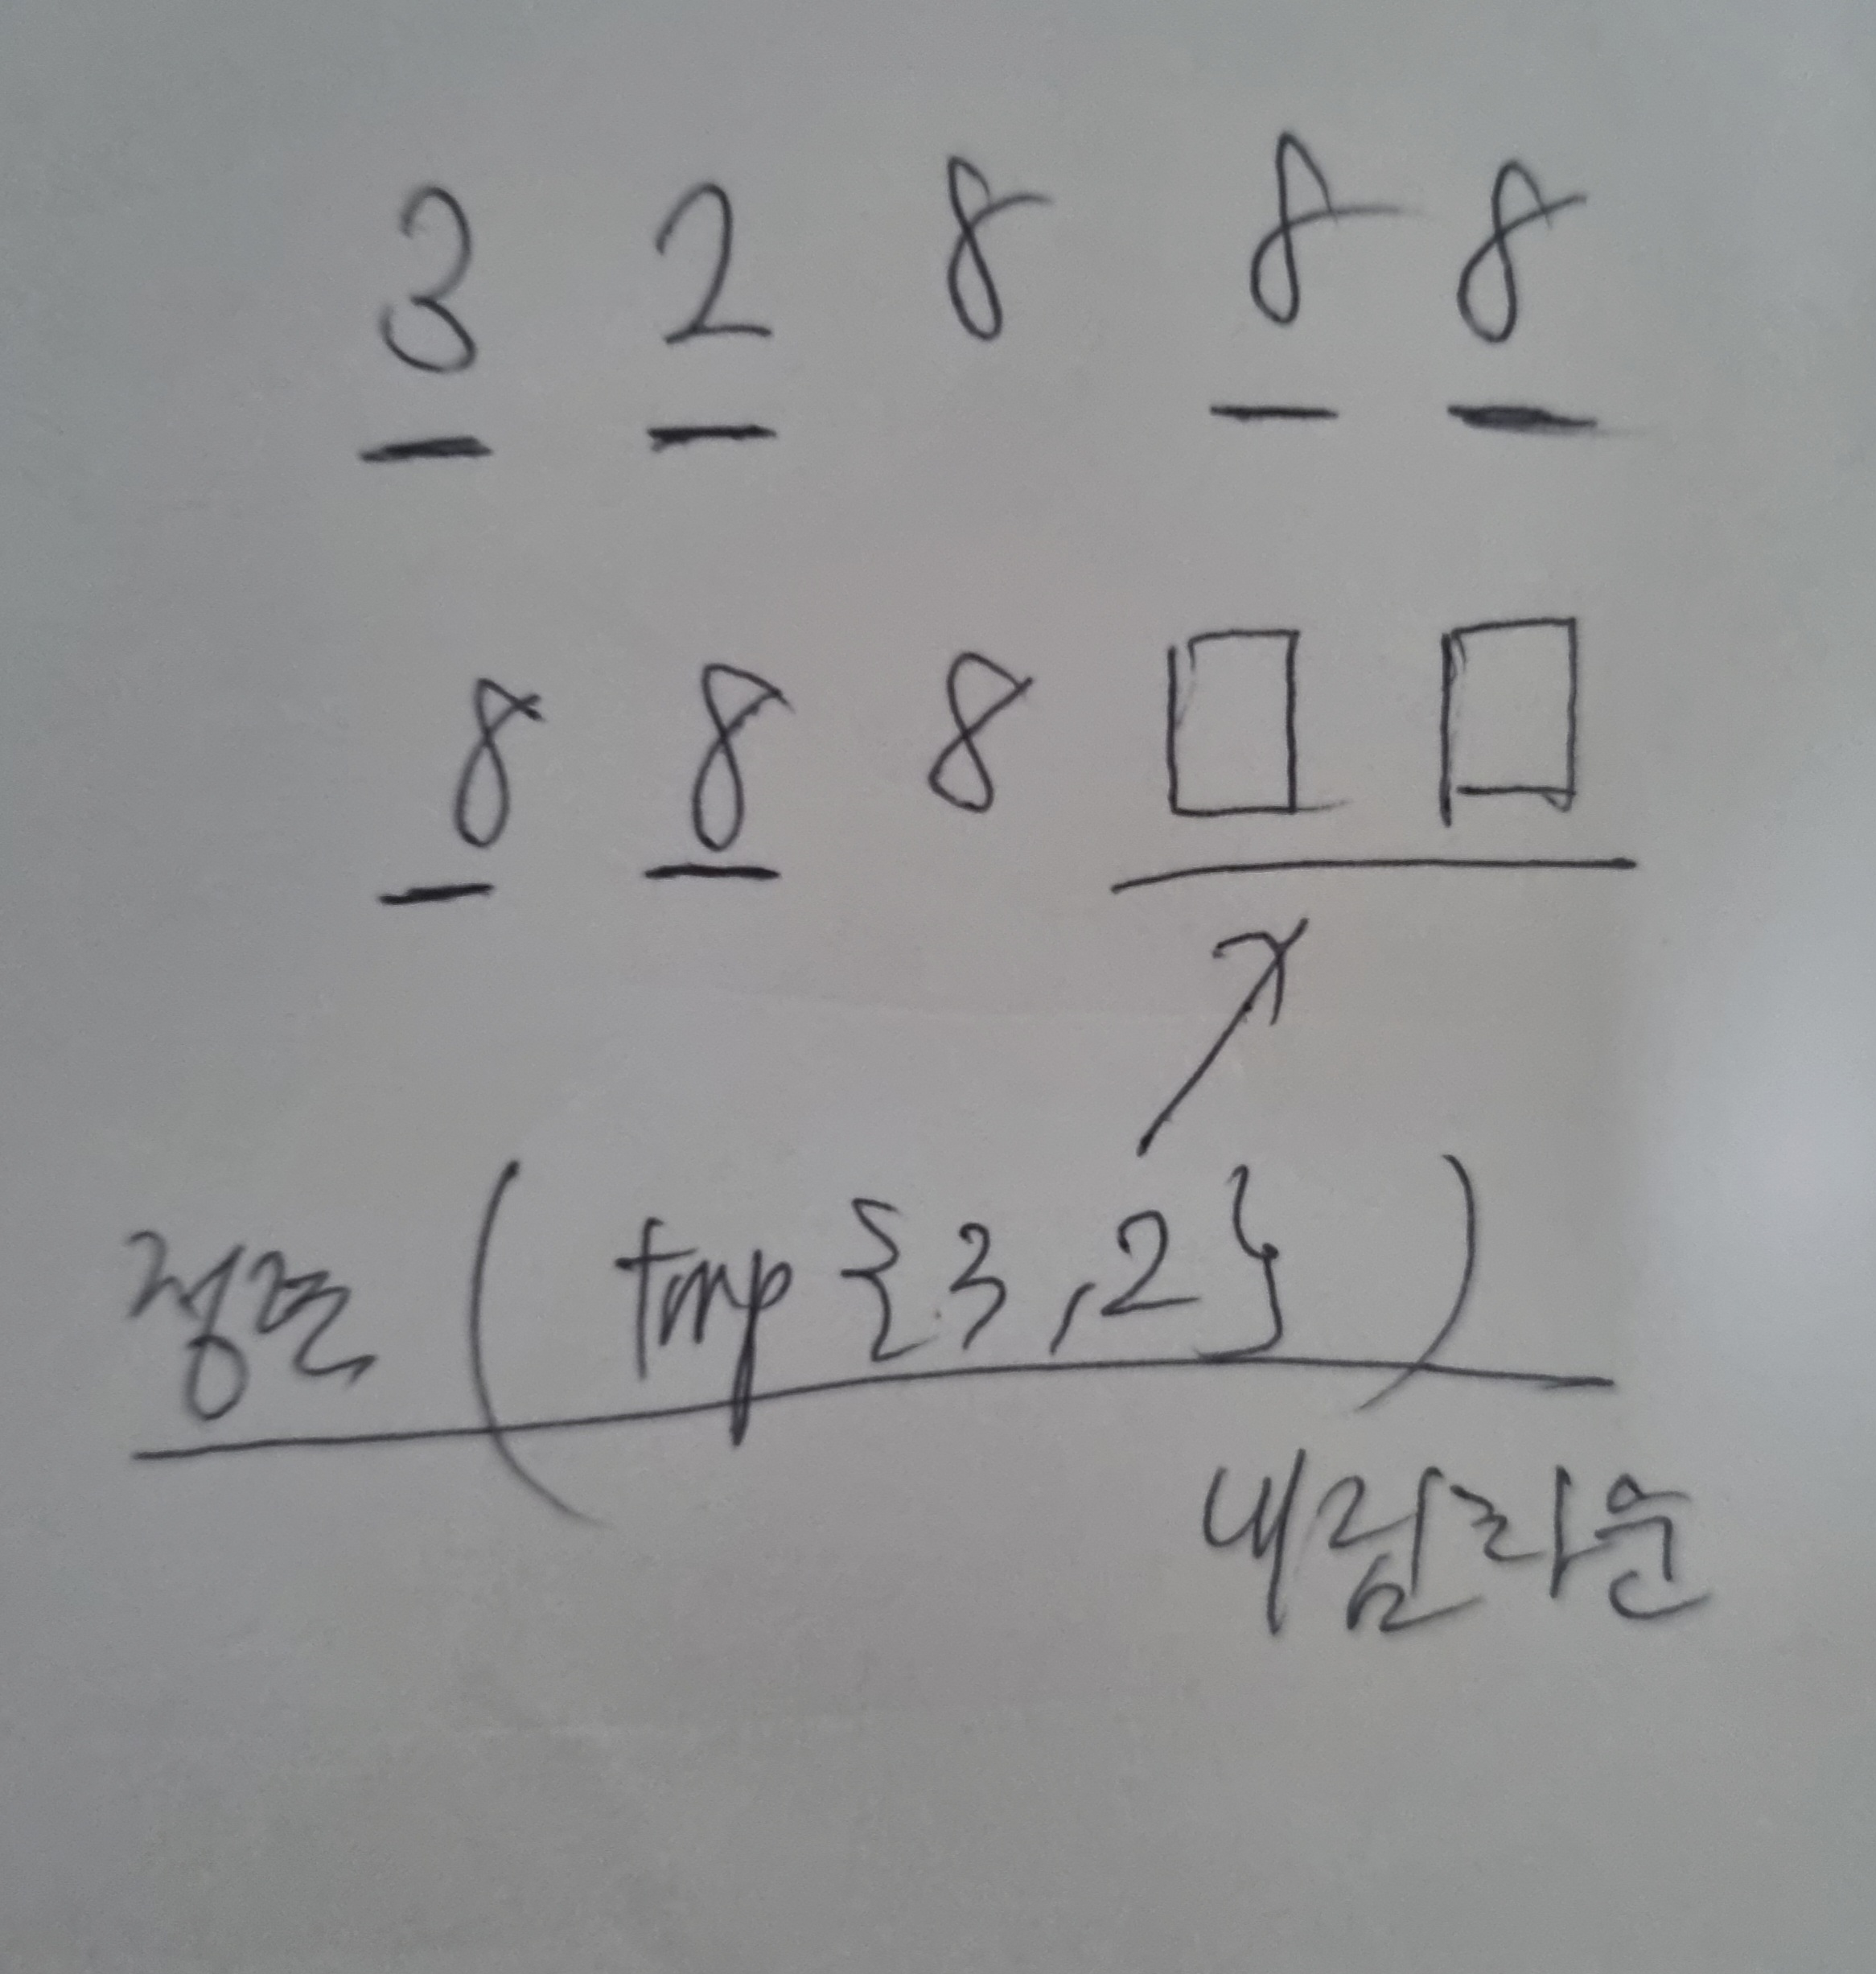 3 2 8 8 8
8 8 8 □ □
정렬 ( tmp {3,2} )
내림차순